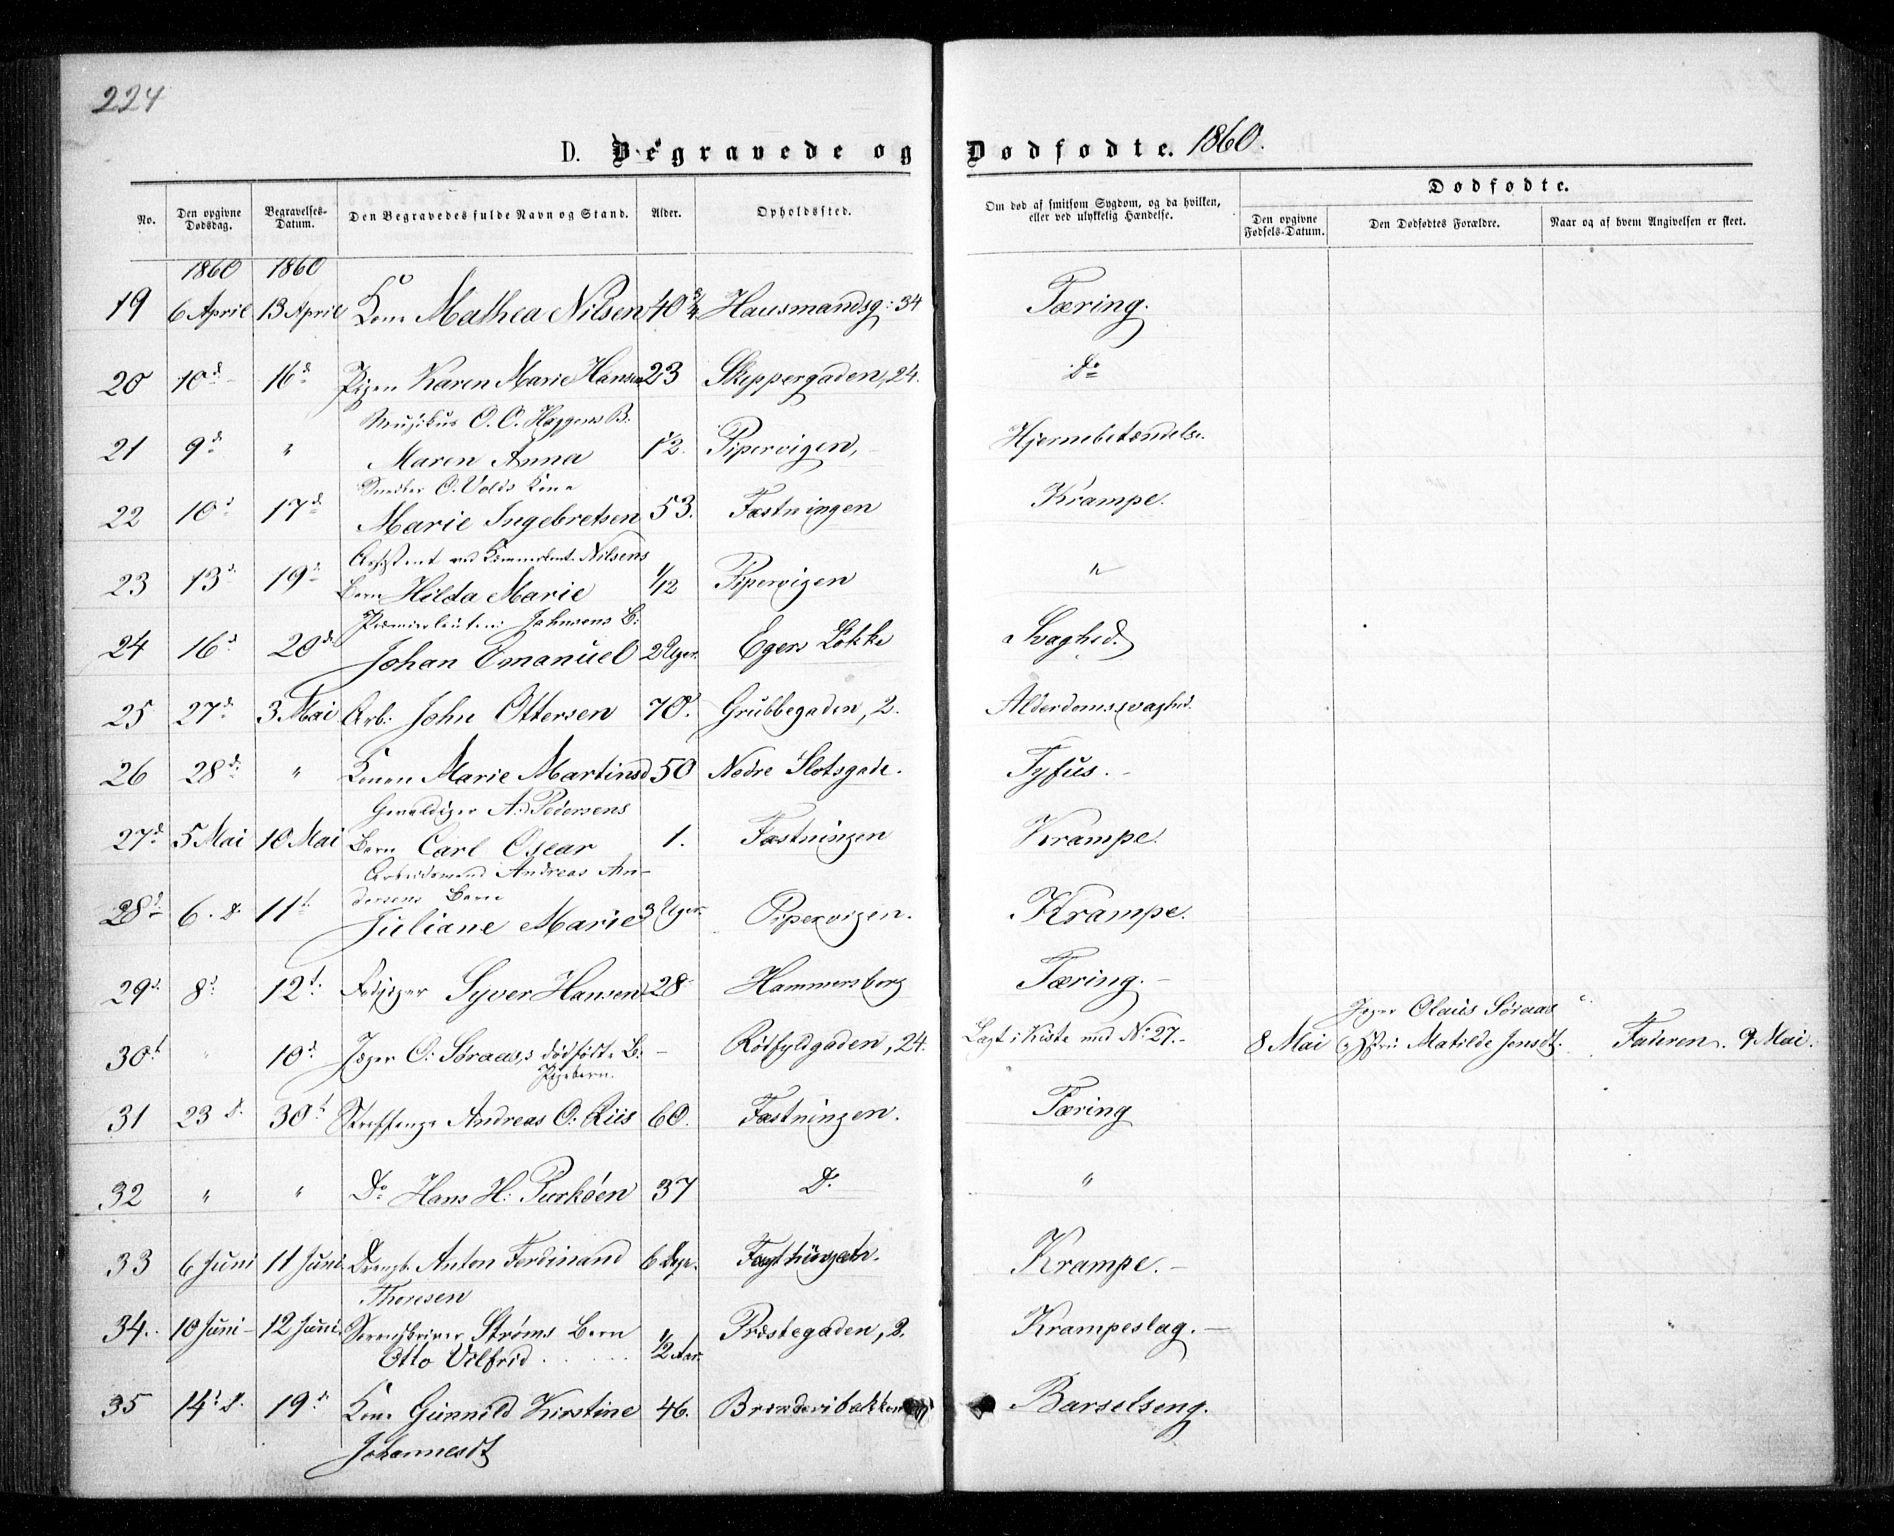 224
D. Begravede og Dødfødte. 1860.
No. Den opgivne Dødsdag. Begravelses-Datum. Den Begravedes fulde Navn og Stand. Alder. Opholdssted. Om død af smitsom Sygdom, og da hvilken, eller ved ulykkelig Hændelse. Dødfødte.
Den opgivne Fødsels-Datum. Den Dødfødtes Forældre. Naar og af hvem Angivelsen er skeet.
1860 1860
19 6 April 13 April Kone Mathea Nilsen 40 3/4 Hausmandsg: 34 Tæring.
20 10 d 16 d Pigen Karen Marie Hansen 23 Skippergaden, 24. Do
Musikus O. O. Haggens B.
21 9 d " Maren Anna 1/2. Pipervigen, Hjernebetændelse.
Snedker O. Volds Kone
22 10 d 17 d Marie Ingebretsen 53. Fæstningen Krampe.
Assistent ved Nilsens
23 13 d 19 d Barn Hilda Marie 1/12 Pipervigen "
Premierleuten: Johnsens B:
24 16 d 20 d Johan Emanuel 2 Uger. Egers Løkke Svaghed.
25 27 d 3 Mai Arb: John Ottersen 70. Grubbegaden, 2. Alderdomssvaghed.
26 28 d " Konen Marie Martinsd 50 Nedre Slotsgade. Tyfus.
Gevaldiger A: Pedersens
27 d 5 Mai 10 Mai Barn Carl Oscar 1. Fæstningen Krampe.
Arbeidsmand Andreas An-
dersens Barn
28 d 6. d. 11 t Juliane Marie 3 Uger. Pipervigen. Krampe.
29 d 8 d 12 t Syver Hansen 28 Hammersborg Tæring.
Jæger Olaus Søraas
30 t " 10 d Jæger O: Søraas,s dødfødte B. - Rødfyldgaden, 24. Lagt i Kiste med No 27. 8 Mai Matilde Jensdt. Faderen. 9 Mai.
Pigebarn.
31 23 d. 30 t Andreas O: Riis 60. Fæstningen. Tæring
32 " " Do Hans H: Purkøen 37 D. "
33 6 Juni 11 Juni Drengb. Anton Ferdinand 6 Dage. Krampe.
Theresen
34. 10 Juni 12 Juni. Strøms Barn 1/2 Aar. Præstegaden, 2. Krampeslag.
Otto Vilfrid
35 14 d. 19 d Kone Gunnild Kirstine 46. Brænderibakken Barselseng.
Johannesdt